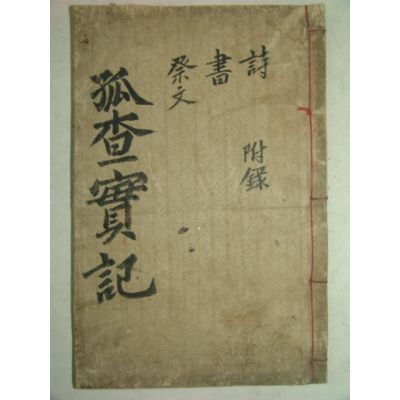 詩 附錄
書
祭文
孤査實記